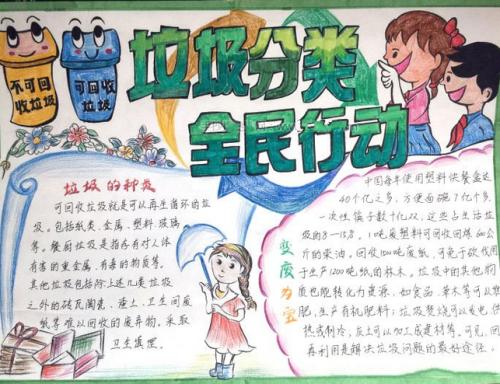 不可回
收垃圾
可回收
垃圾
垃圾分类
全民行动
垃圾的种类
可回收垃圾就是可以再生循环的垃
圾。包括纸类、金属、塑料、玻璃
等。餐厨垃圾是指含有对人体
有害的重金属、有毒的物质等。
其他垃圾包括除上述几类垃圾
之外的砖瓦陶瓷、渣土、卫生间废
纸等难以回收的废弃物。采取
卫生填埋。
变废为宝
中国每年使用塑料快餐盒达
40个亿之多，方便面碗7亿个多
一次性筷子数十亿双，这些占生活垃
圾的8—15%。1吨废塑料可回收回炼600公
斤的柴油。回收1500吨废纸，可免于砍伐用
于生产1200吨纸的林木。垃圾中的其他物
质也能转化为资源，如食品、草木等可以堆
肥，生产有机肥料；垃圾焚烧可以发电、供
热或制冷；灰土可以加工成建材等。可见，回
再利用是解决垃圾问题的最好途径。